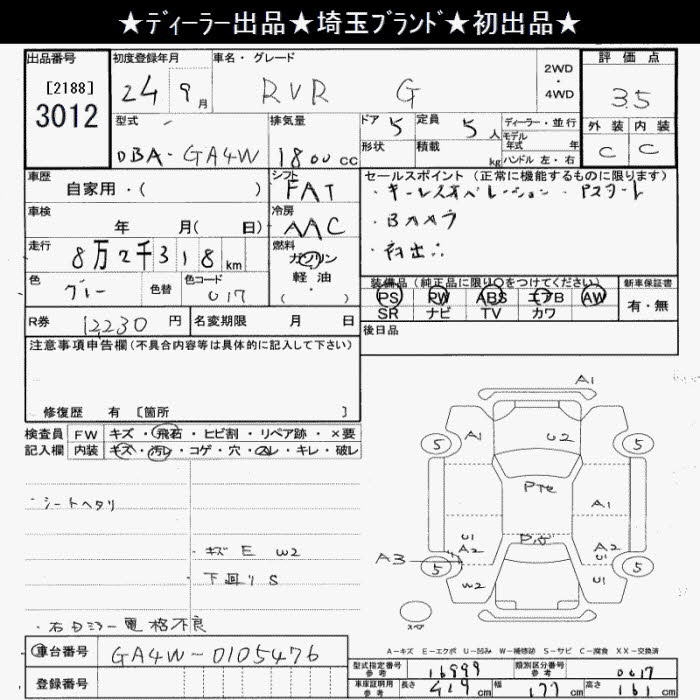 ★ディーラー出品★埼玉ブランド★初出品★
出品番号
[2188]
3012
初度登録年月
24 9月
車名・グレード
RVR G
2WD
・
4WD
評価点
3.5
外装 内装
C C
型式
DBA-GA4W
排気量
1800cc
ドア 5
定員 5人
形状
積載 kg
ディーラー・並行
モデル年式 年
ハンドル 左・右
車歴
自家用・( )
シフト
FAT
セールスポイント (正常に機能するものに限ります)
・キーレスオペレーション ・Pスタート
・Bカメラ
・初出品
車検
年 月( 日)
冷房
AAC
走行
8万2千318km
燃料
ガソリン
軽油
・
( )
色
グレー
色替
色コード
U17
装備品 (純正品に限り○をつけてください)
PS PW ABS エアB AW
SR ナビ TV カワ
新車保証書
有・無
R券 12230円
名変期限 月 日
後日品
注意事項申告欄(不具合内容等は具体的に記入して下さい)
修復歴 有 [箇所 ]
検査員
記入欄
FW キズ・飛石・ヒビ割・リペア跡・×要
内装 キズ・汚レ・コゲ・穴・スレ・キレ・破レ
・シートヘタリ
・キズ E W2
下回り S
・右Dミラー電格不良
A1
5
A1
U2
5
Pte
A1
U1
A2
A3
5
W2
A2
U1
U1
5
スペア
A-キズ E-エクボ U-凹み W-補修跡 S-サビ C-腐食 XX-交換済
車台番号
GA4W-0105476
登録番号
型式指定番号
参考
16999
類別区分番号
参考
0017
車庫証明用
参考
長さ 429cm
幅 177cm
高さ 161cm